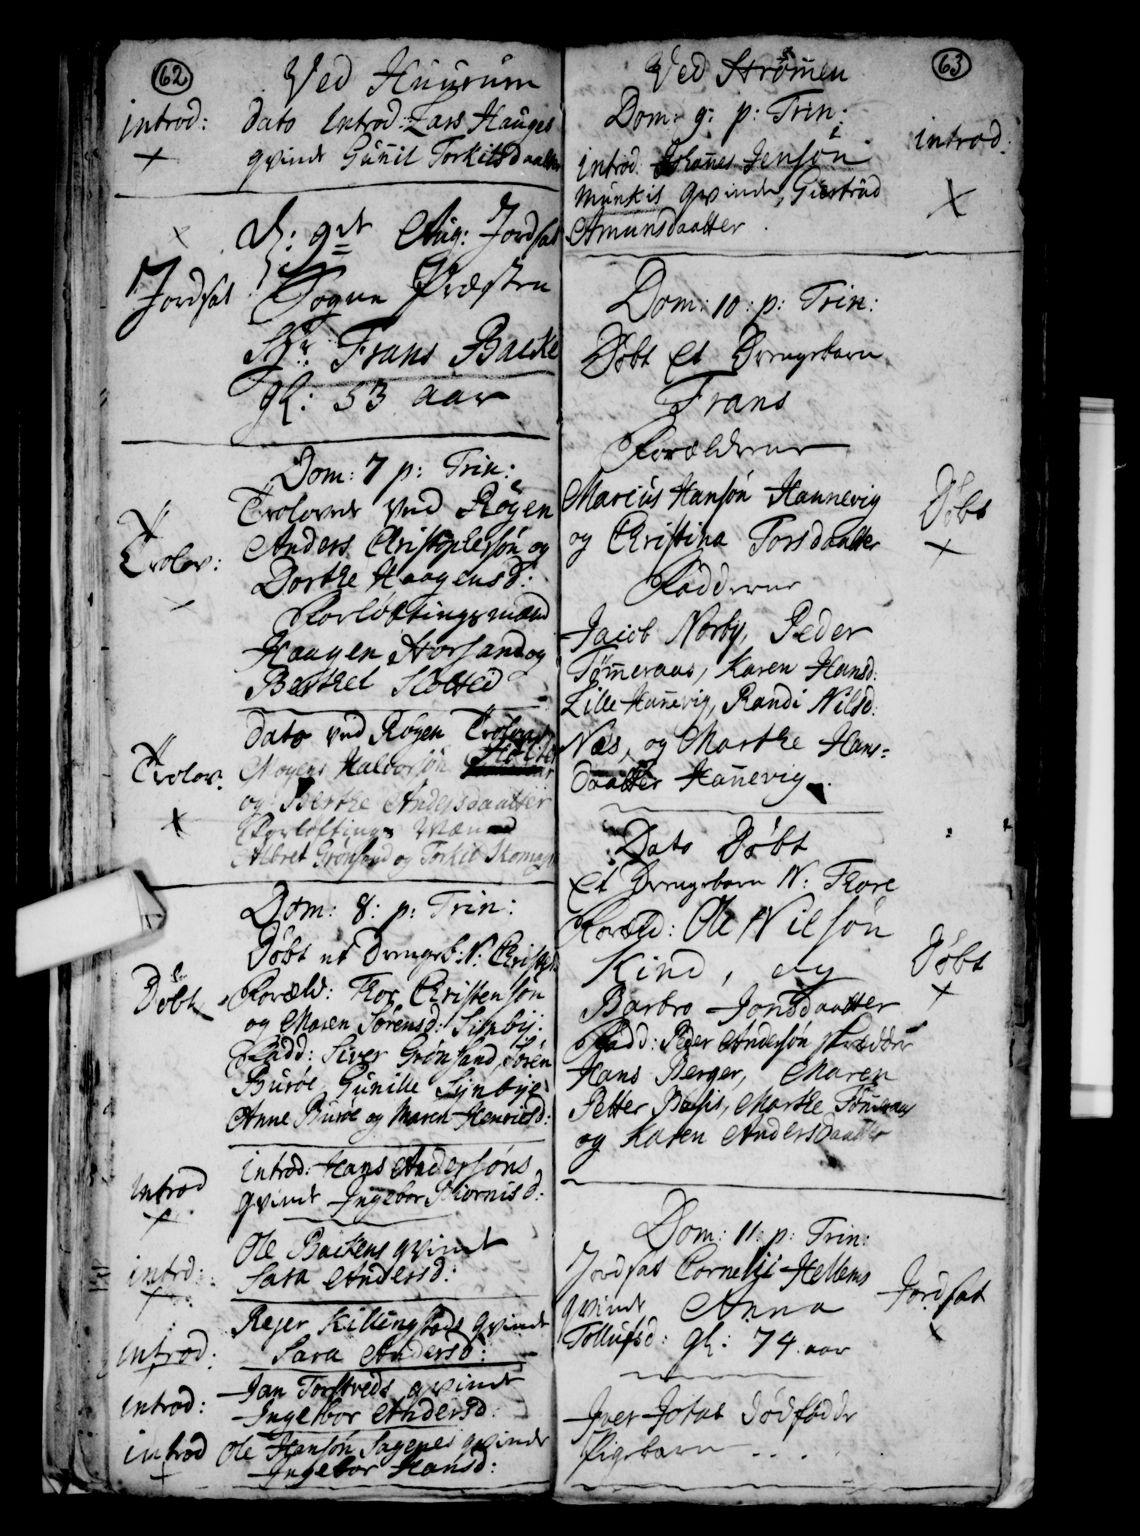 62
Ved Huurum
introd: dato Introd: Lars Hauges
qvinde Gunil Torkilsdaatter
d: 9de Aug: Jordfat
Jordfat Sogne Præsten
Hr: Frans Bache
gl: 53 aar
Dom: 7 p: Trin:
Trolovede ved Røyen
Trolov: Anders Christophersøn og
Dorthe Haagensd:
Forløftingsmænd
Haagen Storsand og
Berthel Slotted
dato ved Røyen Trolovet
Trolov: Mogens Halvorsøn
og Berthe Andersdaatter
Forløftings Mænd
Albret Grønsand og Torkil
Dom: 8: p: Trin:
Døbt et Drengeb: N: Christen
Døbt Foræld: Thor Christensøn
og Maren Sørensd:
Fadd: Siver Grønsand, Søren
Burøe, Gunille
Anne Burøe og Maren Henricsd:
Introd introd: Hans Andersøns
qvinde Ingebor Biørnisd:
introd: Ole Backens qvinde
Sara Andersd:
Introd: Rejer Killingstads qvinde
Sara Andersd:
introd: Jan Torstveds qvinde
Ingebor Andersd:
introd Ole Hansøn Sagenes qvinde
Ingebor Hansd:
63
Ved Strømen
Dom: 9: p: Trin:
introd: introd: Johanes Jensøn
Munkis qvinde, Giertrud
Amunsdaatter.
Dom: 10: p: Trin:
Døbt Et Drengebarn
Frans
Forælderne
Marius Hansøn Hannevig
Døbt og Christina Torsdaatter
Fadderne
Jacob Norby, Peder
Tømeraas, Karen Hansd:
Lille Hanevig, Randi Nilsd:
Næs, og Marthe Hans=
daatter Hanevig.
Dato Døbt
Et Drengebarn N: Thore
Foræld: Ole Nilsøn
Døbt Kind, og
Barbro Jonsdaatter
Fadd: Peder Andersøn skredder
Hans Berger, Maren
Petter, Marthe Tømeraas
og Karen Andersdaatter
Dom: 11: p: Trin:
Jordfat Cornelji Hellems
Jordfat qvinde Anna
Tollufsd: gl: 74 aar
Iver dødfødde
Pigebarn ...